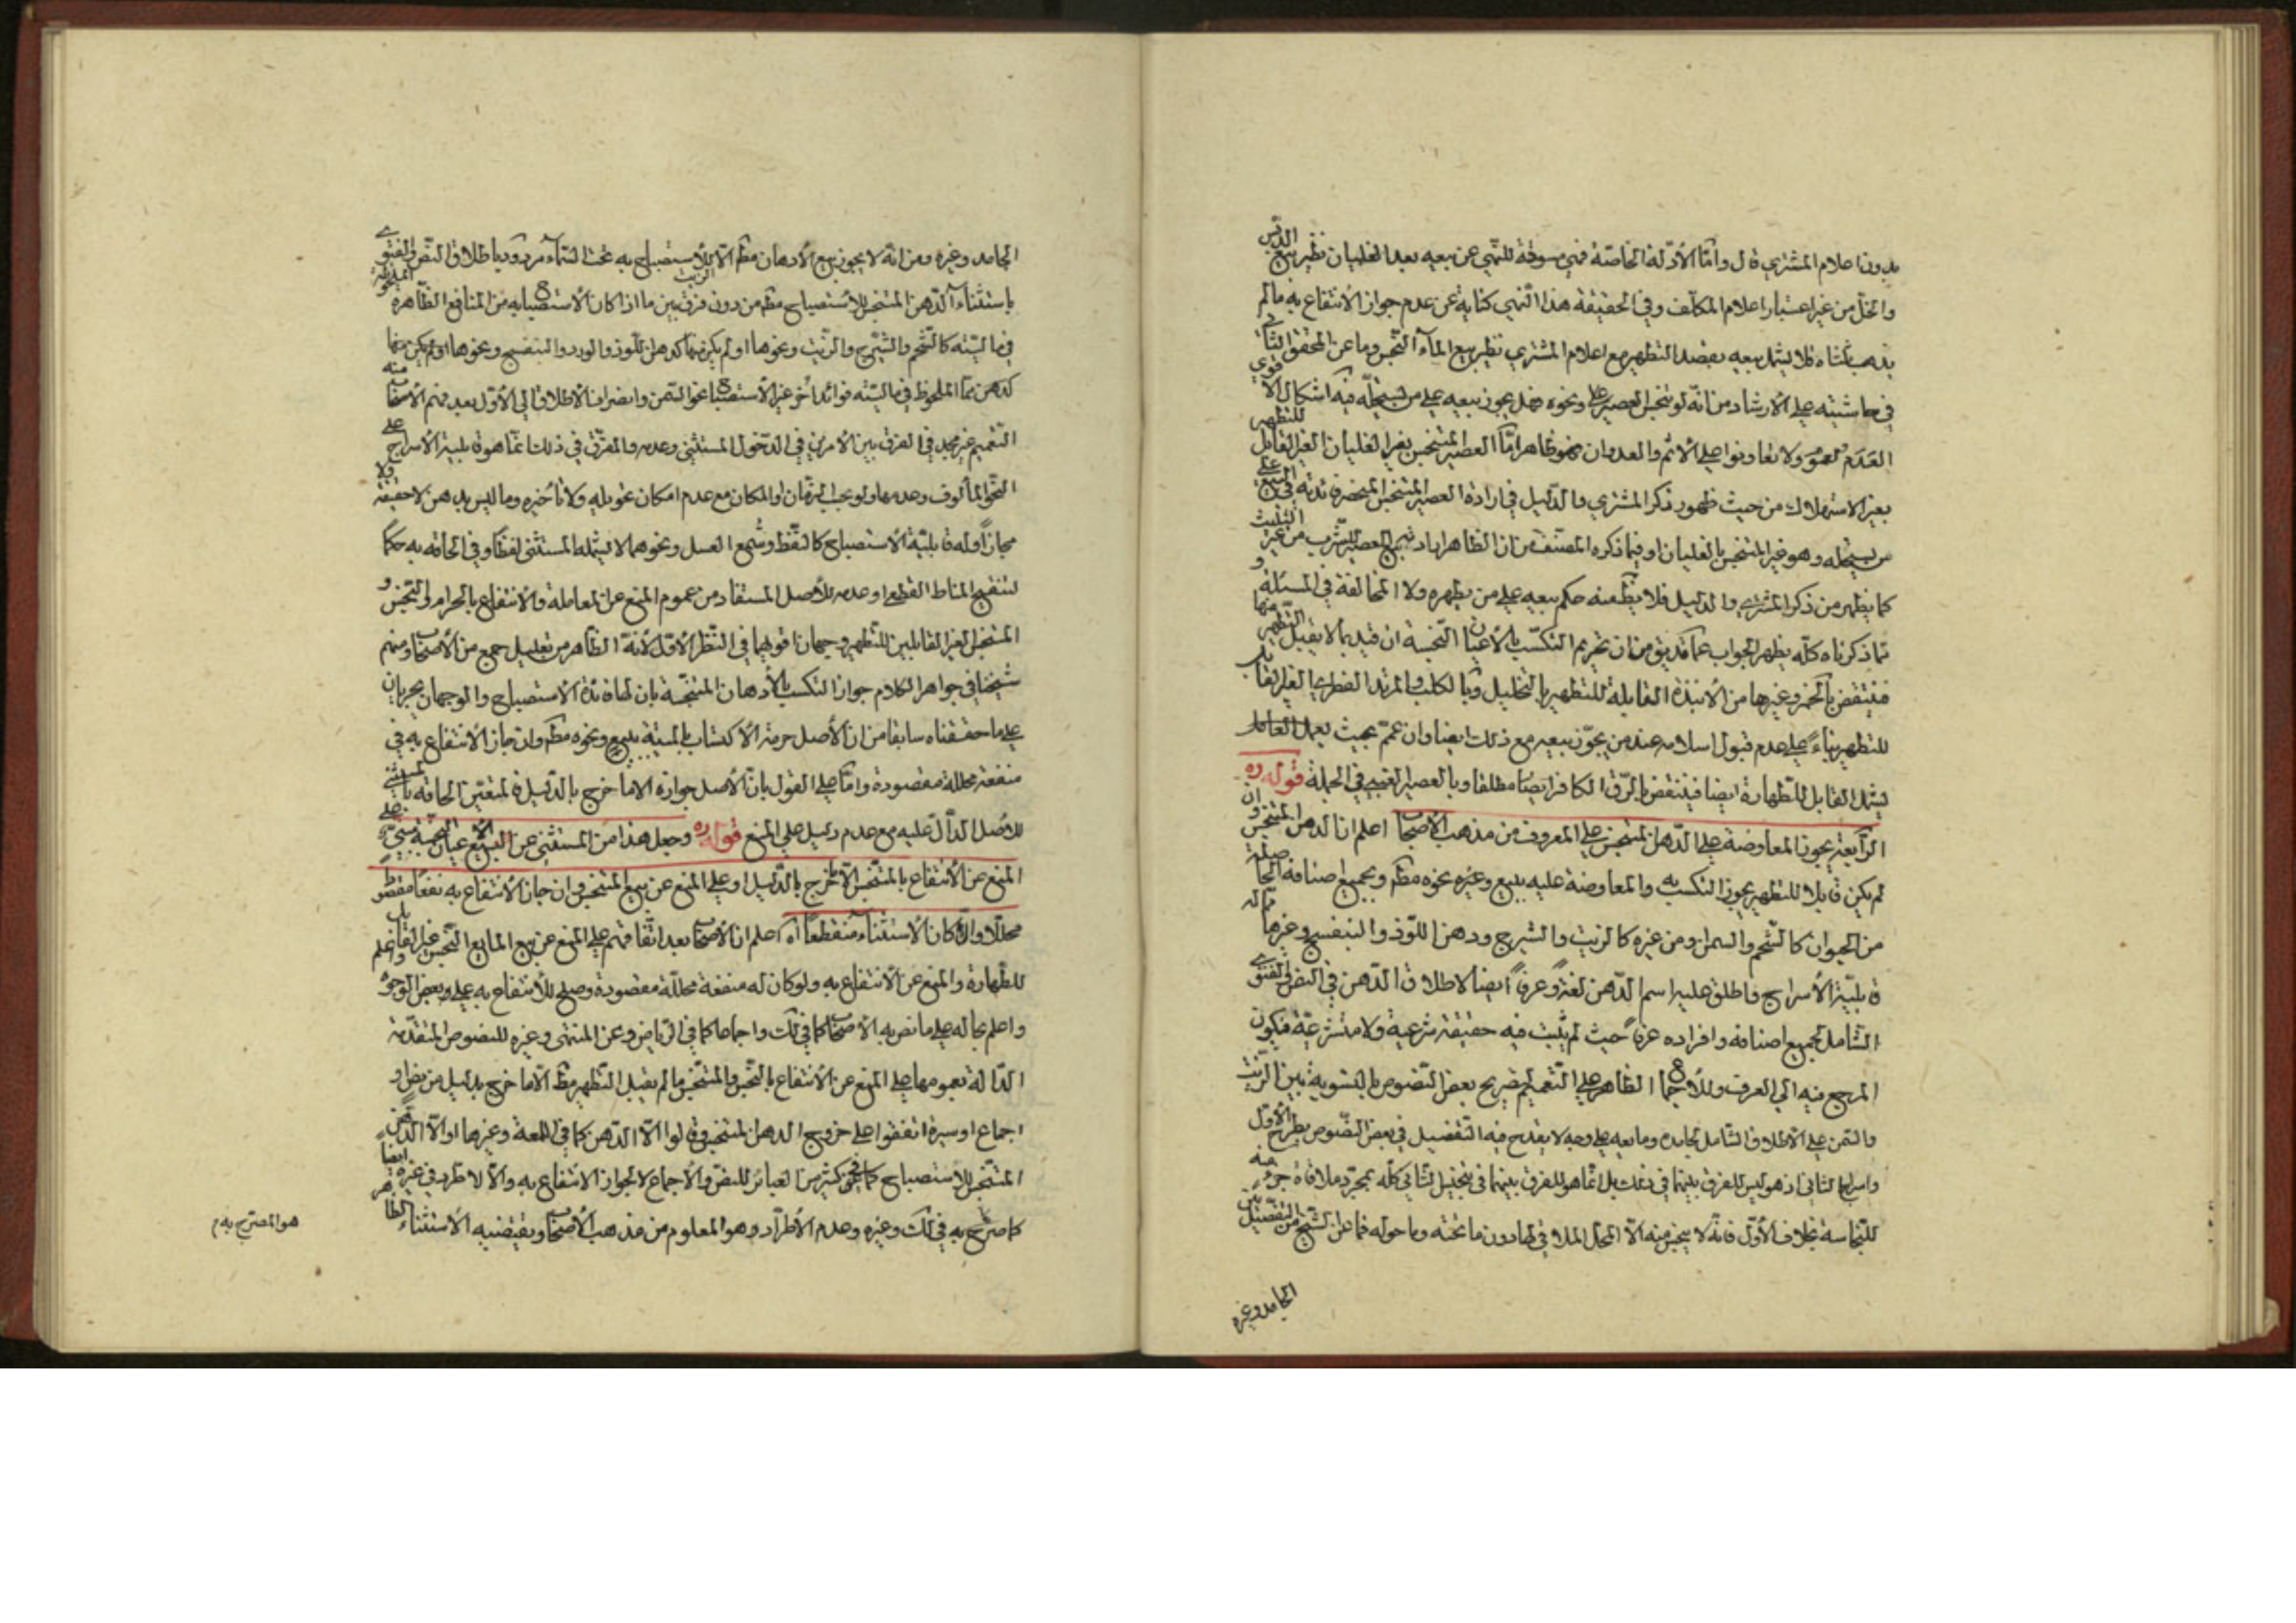 بدون اعلام المشتري قال واما الأدلة الخاصة فهي مسوقة للنهي عن بيعه بعد الغليان نظير بيع الدبس
والخل من غير اعتبار اعلام المكلف وفي الحقيقة هذا النهي كناية عن عدم جواز الانتفاع به مالم
يذهب ثلثاه فلا يشمل بيعه بقصد التطهير مع اعلام المشتري نظير بيع الماء النجس وما عن المحقق الثاني
في حاشيته على الارشاد من انه لو تنجس العصير ونحوه فهل يجوز بيعه على من يستحله فيه اشكال الاقوى
العدم لعموم ولا تعاونوا على الاثم والعدوان فهو ظاهر اما العصير المتنجس بغير الغليان الغير القابل للتطهير
بغير الاستهلاك من حيث ظهور ذكر المشتري والدليل في ارادة العصير المتنجس المنحصر فائدته في البيع على
من يستحله وهو غير المتنجس بالغليان او فيما ذكره المصنف من ان الظاهر اراد بيع العصير للشرب من غير التثليث
كما يظهر من ذكر المشتري والدليل فلا يظهر منه حكم بيعه على من يطهره ولا مخالفة في المسئلة و
مما ذكرناه كله يظهر الجواب عما قد يق من ان تحريم التكسب بالأعيان النجسة ان قيد بما لا يقبل التطهير منها
فينتقض بالخمر وغيرها من الأنبذة القابلة للتطهير بالتخليل وبالكلب والمرتد الفطري الغير القابل
للتطهير بناء على عدم قبول اسلامه عند من يجوز بيعه مع ذلك ايضا وان عمم بحيث
يشمل القابل للطهارة ايضا فينتقض بالرق الكافر ايضا مطلقا وبالعصير العنبي في الجملة قوله ره
الرابعة يجوز المعاوضة على الدهن المتنجس على المعروف من مذهب الأصحاب اعلم ان الدهن المتنجس وان
لم يكن قابلا للتطهير يجوز التكسب به والمعاوضة عليه ببيع وغيره نحوه مطلقا وبجميع اصنافه الحاصلة
من الحيوان كالشحم والسمن ومن غيره كالزيت والشيرج ودهن اللوز والبنفسج وغيرها مما له
قابلية الأسراج واطلق عليه اسم الدهن لغة وعرفا ايضا لاطلاق الدهن في النص والفتوى
الشامل لجميع اصنافه وافراده عرفا حيث لم يثبت فيه حقيقة شرعية ولا متشرعية فيكون
المرجع فيه الى العرف وللاجماع الظاهر على التعميم لتصريح بعض النصوص بالتسوية بين الزيت
والسمن على الاطلاق الشامل لجامده ومايعه على وجه لا يقدح فيه التفصيل في بعض النصوص بطرح الأول
واسراج الثاني اذ هو ليس للفرق بينهما في ذلك بل انما هو للفرق بينهما في تنجيس الثاني كله بمجرد ملاقاة جزء منه
للنجاسة بخلاف الأول فانه لا ينجس منه الا المحل الملاقي لها دون ما تحته وما حوله فما عن الشيخ من التفصيل بين
الجامد وغيره
الجامد وغيره ومن انه لا يجوز بيع الأدهان مطلقا الا الزيت للاستصباح به تحت السماء مردود باطلاق النص والفتوى
باستثناء الدهن المتنجس للاستصباح مطلقا من دون فرق بين ما اذا كان الاستصباح به من المنافع الظاهرة الملحوظة
في ماليته كالشحم والشيرج والزيت ونحوها او لم يكن منها كدهن اللوز والورد والبنفسج ونحوها او لم يكن منها
كدهن مما الملحوظ في ماليته فوائد اخر غير الاستصباح نحو السمن وانصراف الاطلاق الى الأول بعد فهم الأصحاب منه
التعميم غير مجد في الفرق بين الأمرين في الدخول المستثنى وعدمه والفرق في ذلك انما هو قابلية الأسراج على
النحو المألوف وعدمها ولو بحسب الزمان او المكان مع عدم امكان تحويله ولا تأخيره وما ليس بدهن لا حقيقة ولا
مجازا وله قابلية الاستصباح كالنفط وشمع العسل ونحوهما لا يشمله المستثنى لفظا وفي الحاقه به حكما
لتنقيح المناط القطعي او عدمه للأصل المستفاد من عموم المنع عن المعاملة والانتفاع بالحرام والنجس و
المتنجس الغير القابلين للتطهير وجهان اقويهما في النظر الأول لأنه الظاهر من تعليل جمع من الأصحاب ومنهم
شيخنا في جواهر الكلام جواز التكسب بالأدهان المتنجسة بان لها فائدة الاستصباح والوجهان يجريان
على ما حققناه سابقا من ان الأصل حرمة الاكتساب بالميتة ببيع ونحوه مطلقا وان جاز الانتفاع به في
منفعة محللة مقصودة واما على القول بان الأصل جوازه الا ما خرج بالدليل فالمتعين الحاقه بالمستثنى
للأصل الدال عليه مع عدم دليل على المنع قوله ره وجعل هذا من المستثنى عن بيع الأعيان النجسة مبني على
المنع عن الانتفاع بالمتنجس الا ما خرج بالدليل او على المنع عن بيع المتنجس وان جاز الانتفاع به نفعا مقصودا
محللا والا كان الاستثناء منقطعا اه اعلم ان الأصحاب بعد اتفاقهم على المنع عن بيع المايع النجس غير القابل
للطهارة والمنع عن الانتفاع به ولو كان له منفعة محللة مقصودة وصلح للانتفاع به على بعض الوجوه
واعلم بحاله على ما نص به الأصحاب كما في لك واجماعا كما في الرياض وعن المنتهى وغيره للنصوص المتقدمة
الدالة بعمومها على المنع عن الانتفاع بالنجس والمتنجس مالم يقبل التطهير مطلقا الا ما خرج بدليل من نص او
اجماع او سيرة اتفقوا على خروج الدهن المتنجس وقالوا الا الدهن كما في اللمعة وغيرها او الا الدهن
المتنجس للاستصباح كما في كثير من العبائر للنص والأجماع لا لجواز الانتفاع به والا لاطرد في غيره ايضا
كما صرح به في لك وغيره وعدم الاطراد هو المعلوم من مذهب الأصحاب ويقتضيه الاستثناء الظاهر
هو المصرح به م